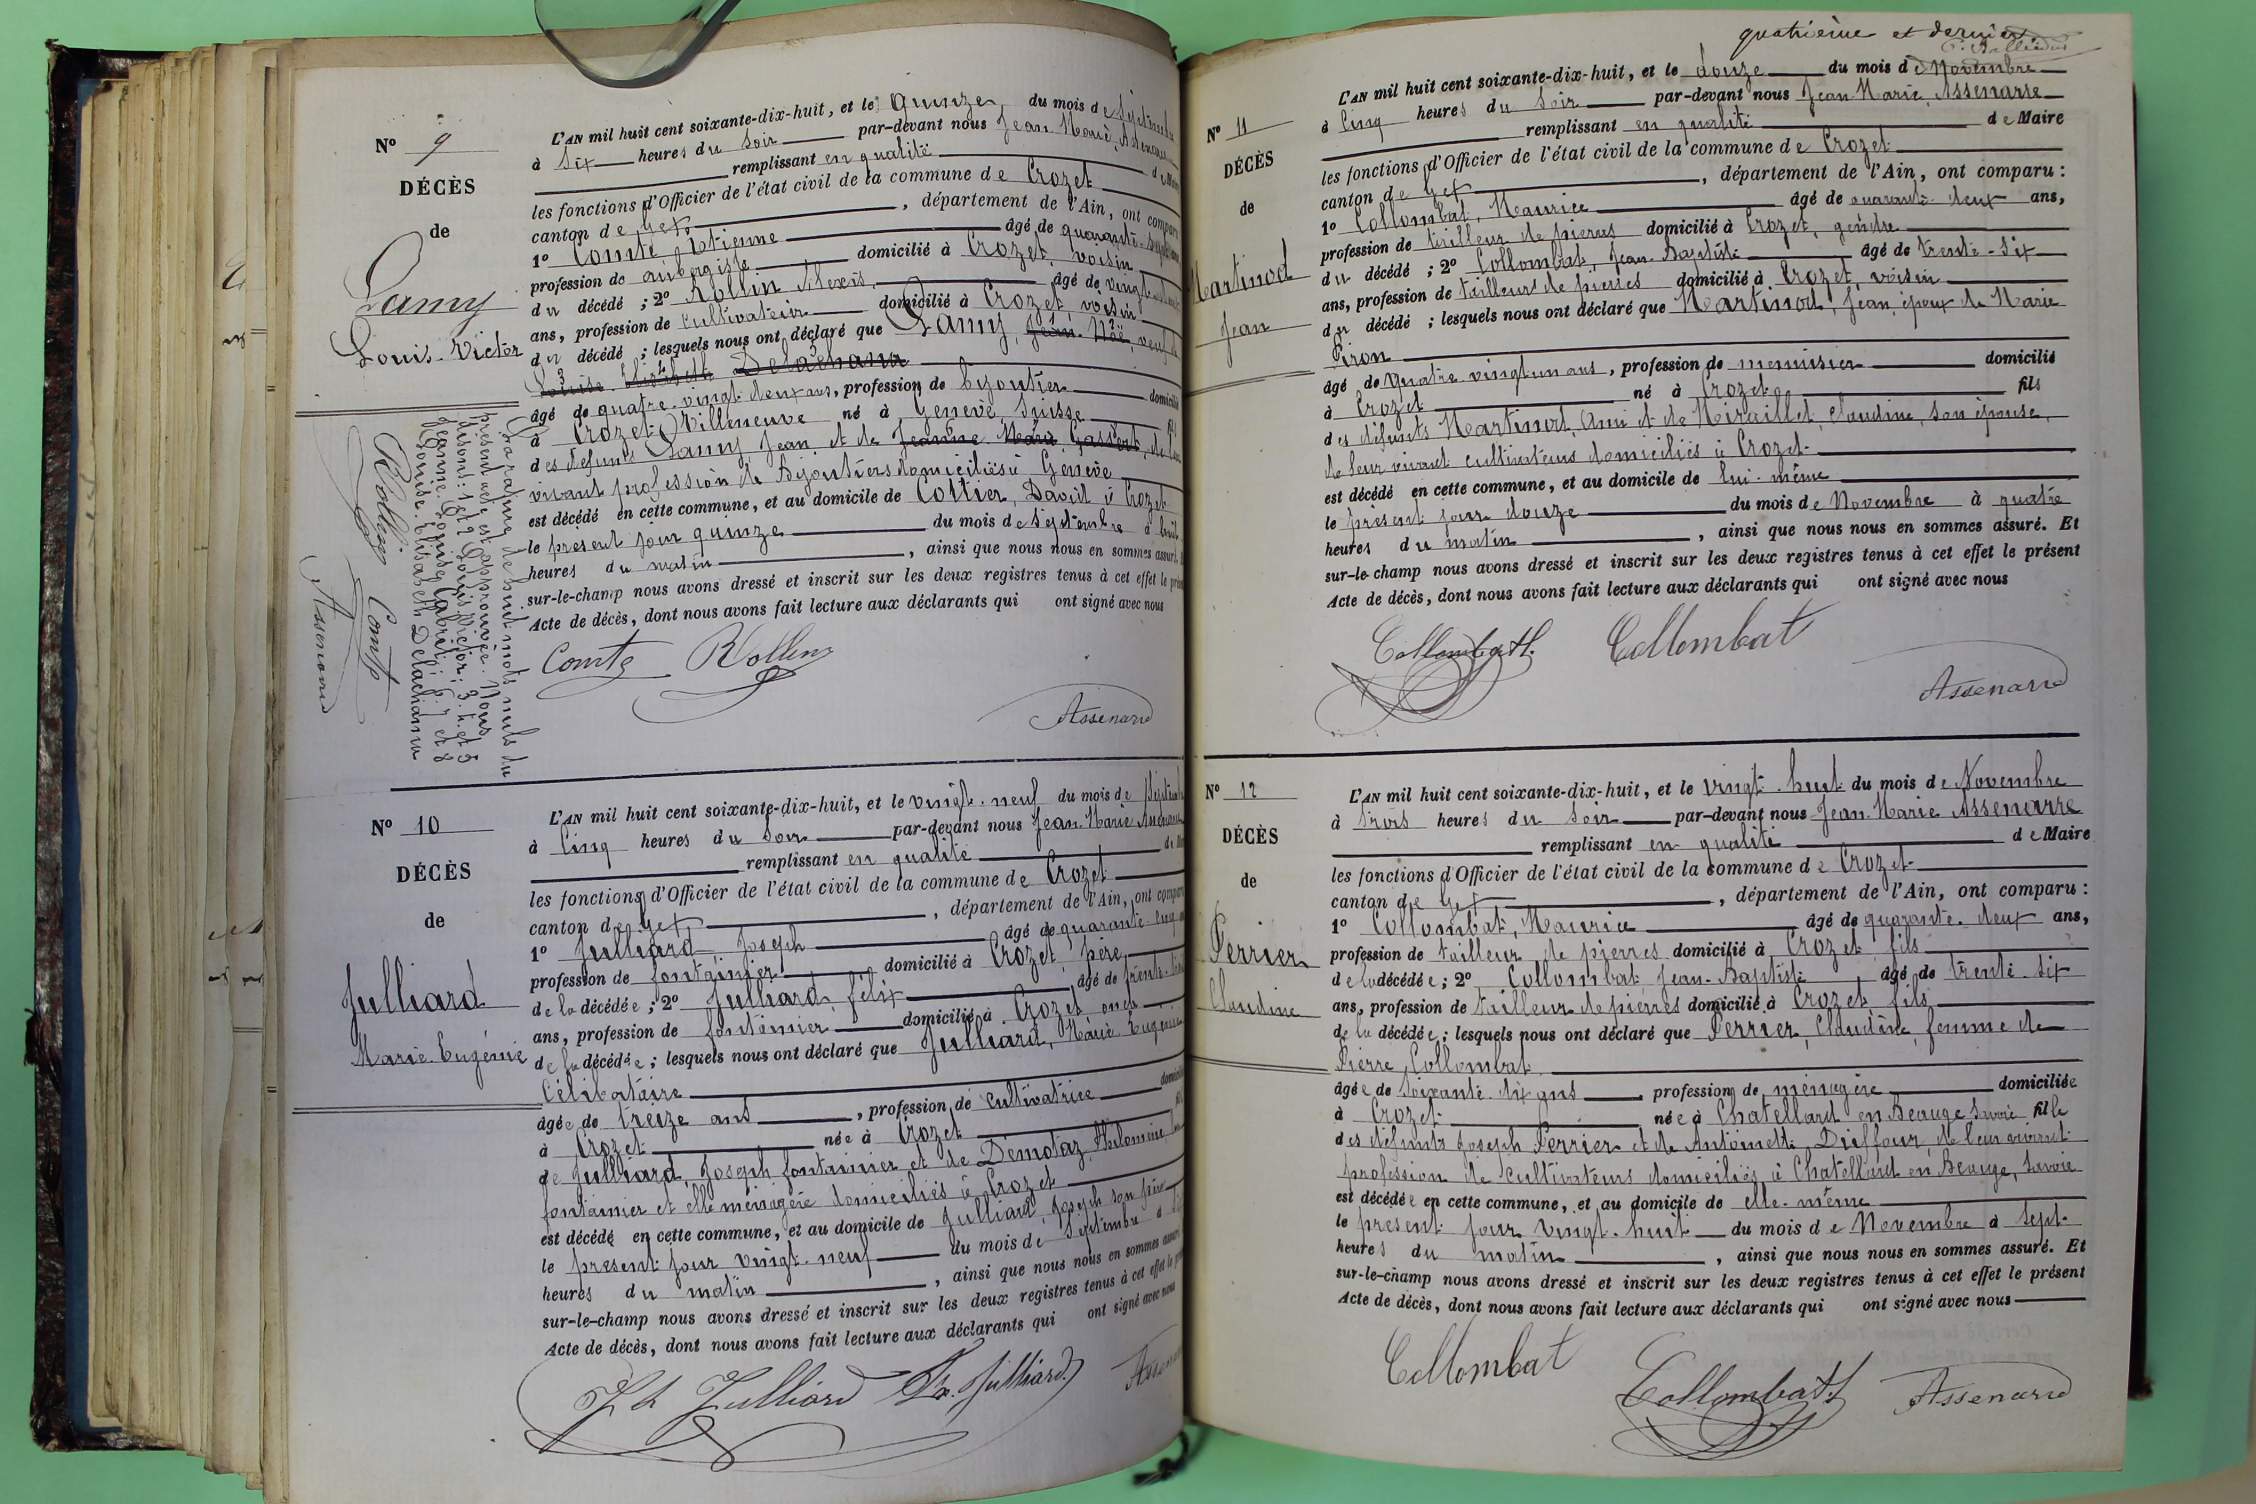 N° 9
DÉCÈS
de
Lamy
Louis-Victor
L'AN mil huit cent soixante-dix-huit, et le quinze du mois de Septembre
à six heures du soir par-devant nous Jean Marie Assenarre
remplissant en qualité de Maire
les fonctions d'Officier de l'état civil de la commune de Crozet
canton de Gex, département de l'Ain, ont comparu
1° Comte, Etienne âgé de quarante-
profession de aubergiste domicilié à Crozet, voisin
du décédé ; 2° Rollin Alexis, âgé de vingt
ans, profession de cultivateur domicilié à Crozet, voisin
du décédé ; lesquels nous ont déclaré que Lamy, Jean Noë, veuf de
Louise Elisabeth Delachana
âgé de quatre-vingt-deux ans, profession de bijoutier domicilié
à Crozet-Villeneuve né à Genève, Suisse fils
des défunts Lamy Jean et de Jeanne Marie Gassent, de leur
vivant profession de Bijoutiers domiciliés à Genève
est décédé en cette commune, et au domicile de Cottier, David à Crozet
le présent jour quinze du mois de Septembre à huit
heures du matin, ainsi que nous nous en sommes assuré,
sur-le-champ nous avons dressé et inscrit sur les deux registres tenus à cet effet le présent
Acte de décès, dont nous avons fait lecture aux déclarants qui ont signé avec nous
Comte Rollin
Assenarre
La rature de huit mots nuls du
présent acte est approuvée. Nous
disons: 1 et 2 Louis Victor; 3. 4. et 5
Jeanne. Louise Gabriel; 6. 7 et 8
Louise. Elisabeth Delachana
Rollin Comte
Assenarre
N° 10
DÉCÈS
de
Julliard
Marie-Eugénie
L'AN mil huit cent soixante-dix-huit, et le vingt-neuf du mois de Septembre
à cinq heures du soir par-devant nous Jean-Marie Assenarre
remplissant en qualité de Maire
les fonctions d'Officier de l'état civil de la commune de Crozet
canton de Gex, département de l'Ain, ont comparu
1° Julliard Joseph âgé de quarante-cinq
profession de fontainier domicilié à Crozet, père
de la décédée ; 2° Julliard, félix âgé de trente-
ans, profession de fontainier domicilié à Crozet oncle
de la décédée ; lesquels nous ont déclaré que Julliard, Marie Eugénie
Célibataire
âgée de treize ans, profession de cultivatrice domiciliée
à Crozet née à Crozet
de Julliard, Joseph fontainier et de Démotaz, Philomène
fontainier et elle ménagère domiciliés à Crozet
est décédé en cette commune, et au domicile de Julliard, Joseph son père
le présent jour vingt-neuf du mois de Septembre à
heures du matin, ainsi que nous nous en sommes assuré
sur-le-champ nous avons dressé et inscrit sur les deux registres tenus à cet effet le
Acte de décès, dont nous avons fait lecture aux déclarants qui ont signé avec nous
Jh Julliard Fx. Julliard
Assenarre
quatrième et dernier
N° 11
DÉCÈS
de
Martinod
Jean
L'AN mil huit cent soixante-dix-huit, et le douze du mois de Novembre
à cinq heures du soir par-devant nous Jean-Marie Assenarre
remplissant en qualité de Maire
les fonctions d'Officier de l'état civil de la commune de Crozet
canton de Gex, département de l'Ain, ont comparu :
1° Collombat, Maurice âgé de quarante-deux ans,
profession de tailleur de pierres domicilié à Crozet, gendre
du décédé ; 2° Collombat, Jean-Baptiste âgé de trente-six
ans, profession de tailleurs de pierres domicilié à Crozet, voisin
du décédé ; lesquels nous ont déclaré que Martinod, Jean, époux de Marie
Piron
âgé de quatre-vingt un ans, profession de menuisier domicilié
à Crozet né à Crozet fils
des défunts Martinod, Ami et de Miraillet, Claudine, son épouse,
de leur vivant cultivateurs domiciliés à Crozet-
est décédé en cette commune, et au domicile de lui-même
le présent jour douze du mois de Novembre à quatre
heures du matin, ainsi que nous nous en sommes assuré. Et
sur-le-champ nous avons dressé et inscrit sur les deux registres tenus à cet effet le présent
Acte de décès, dont nous avons fait lecture aux déclarants qui ont signé avec nous
Collombat Collombat
Assenarre
N° 12
DÉCÈS
de
Perrier
Claudine
L'AN mil huit cent soixante-dix-huit, et le vingt-huit du mois de Novembre
à trois heures du soir par-devant nous Jean-Marie Assenarre
remplissant en qualité de Maire
les fonctions d'Officier de l'état civil de la commune de Crozet-
canton de Gex, département de l'Ain, ont comparu :
1° Collombat, Maurice âgé de quarante-deux ans,
profession de tailleur de pierres domicilié à Crozet fils
de la décédée ; 2° Collombat Jean-Baptiste âgé de trente-six
ans, profession de tailleur de pierres domicilié à Crozet fils
de la décédée ; lesquels nous ont déclaré que Perrier, Claudine, femme de
Pierre Collombat
âgée de soixante-dix ans, profession de ménagère domiciliée
à Crozet née à Chatellard en Beauge Savoie fille
des défunts Joseph Perrier et de Antoinette Dieffour, de leur vivant
profession de cultivateurs domiciliés à Chatellard en Beauge, Savoie
est décédée en cette commune, et au domicile de elle-même
le présent jour vingt-huit du mois de Novembre à sept-
heures du matin, ainsi que nous nous en sommes assuré. Et
sur-le-champ nous avons dressé et inscrit sur les deux registres tenus à cet effet le présent
Acte de décès, dont nous avons fait lecture aux déclarants qui ont signé avec nous
Collombat Collombat
Assenarre